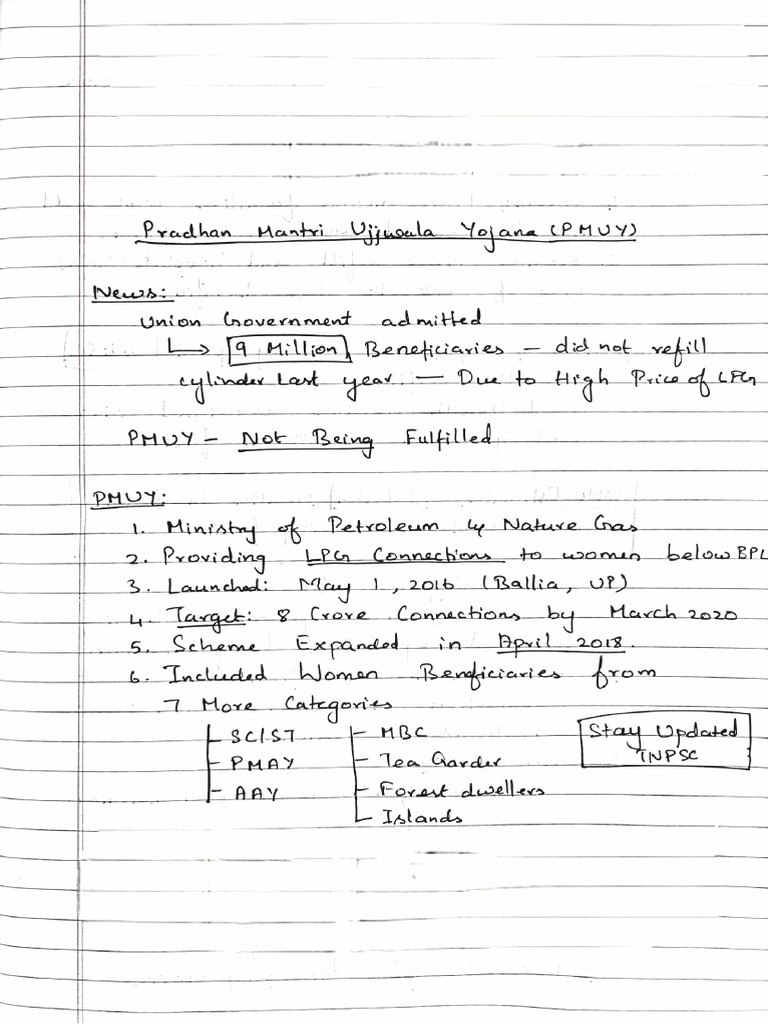 Pradhan Mantri Ujjwala Yojana (PMUY)
News:
Union Government admitted
↳ 9 Million Beneficiaries – did not refill
cylinder last year. – Due to High Price of LPG
PMUY – Not Being Fulfilled
PMUY:
1. Ministry of Petroleum & Nature Gas
2. Providing LPG Connections to women below BPL
3. Launched: May 1, 2016 (Ballia, UP)
4. Target: 8 Crore Connections by March 2020
5. Scheme Expanded in April 2018.
6. Included Women Beneficiaries from
7 More Categories
SC/ST – MBC
– PMAY – Tea Garder
– AAY – Forest dwellers
– Islands
Stay Updated
TNPSC